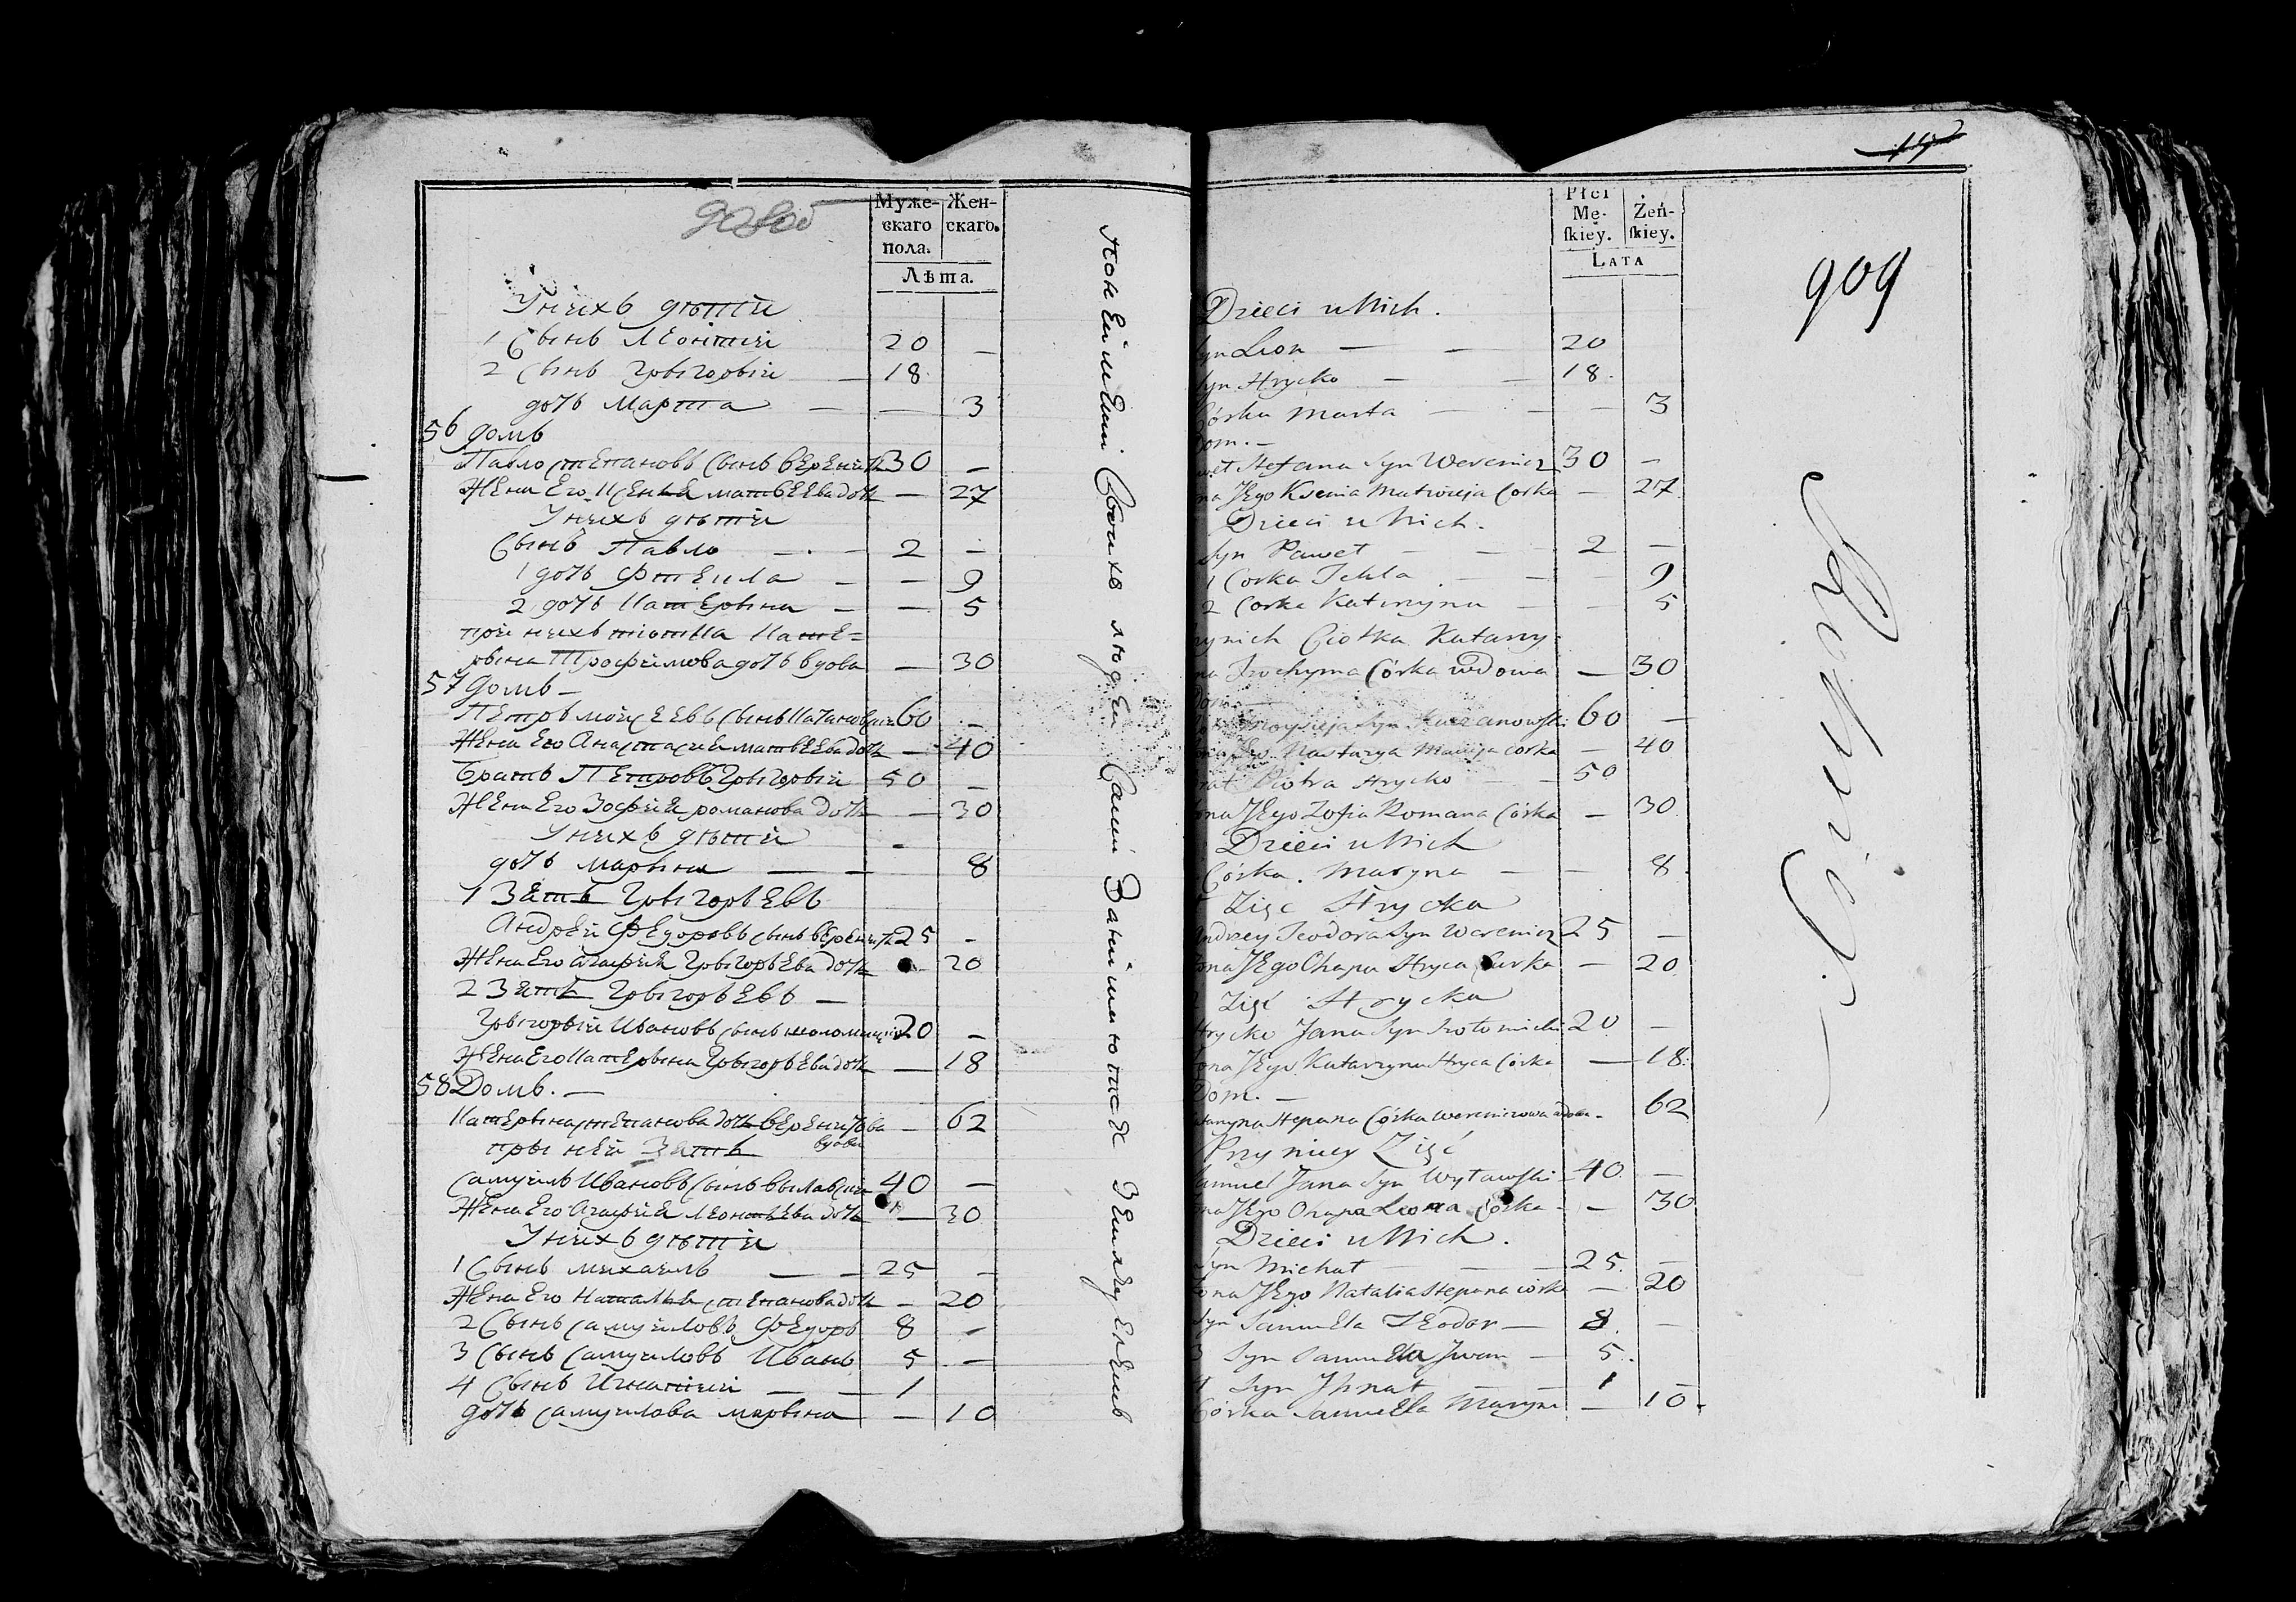 908об
Муже-
скаго
пола.
Жен-
скаго.
Лѣта.
У нихъ дѣти
1 Сынъ Леонтій 20 —
2 Сынъ Грыгорый — 18
дочь Марта — — 3
56 домъ
Павло Степановъ Сынъ Вереничъ 30 —
Жена Его Ксенія Матвеева дочь — 27
У нихъ дѣти
Сынъ Павло — 2 —
1 дочь Фтекла — — 9
2 дочь Катерына — — 5
при нихъ тіотка Кате=
рына Трофимова дочь вдова — 30
57 домъ —
Петръ Мойсеевъ Сынъ 60 —
Жена Его Анастасия Матвеева дочь — 40
Братъ Петровъ Грыгорый 50 —
Жена Его Зофия Романова дочь — 30
У нихъ дѣти
дочь Марына — — 8
1 Зять Грыгорьевъ
Андрей Федоровъ Сынъ Вереничъ 25 —
Жена Его Агафия Грыгорьева дочь — 20
2 Зять Грыгорьевъ —
Грыгорый Ивановъ Сынъ 20 —
Жена Его Катерына Грыгорьева дочь — 18
58 Домъ. —
Катерына Степанова дочь Вереничова — 62
вдова
пры ней Зять
Самуилъ Ивановъ Сынъ 40 —
Жена Его Агафия Леонтьева дочь — 30
У нихъ дѣти
1 Сынъ Михаилъ — — 25 —
Жена Его Наталья Степанова дочь — 20
2 Сынъ Самуиловъ Федоръ 8 —
3 Сынъ Самуиловъ Иванъ 5 —
4 Сынъ Игнатий — — 1
дочь Самуилова Марына — 10
Своихъ людей
Płci
Mę-
ſkiey.
Żeń-
ſkiey.
LATA
909
Dzieci u Nich.
Syn Leon — — 20
Syn Hrycko — — 18.
Córka Marta — — — 3
Dom. —
Stefana Syn Werenicz 30 —
Jego Ksenia Matwieja Corka — 27.
Dzieci u Nich.
Syn Paweł — — 2 —
1 Corka Tekla — — — 9
2 Corka Katarzyna — — 5
nich Ciotka Katarzy=
na Trochyma Córka wdowa — 30
Dom. —
Moysieja Syn 60 —
Nastazya Macieja corka — 40
Brat Piotra Hrycko — — 50
Jego Zofia Romana Córka — 30
Dzieci u Nich
Córka. Maryna — — 8
Zięc Hrycka
Andrzey Teodora Syn Werenicz 25 —
Jego Ohapa Hryca Curka — 20
2 Zięć Hrycka
Hrycko Jana Syn 20 —
Jego Katarzyna Hryca Córka — 18.
Dom. —
Stepana Córka Wereniczowa wdowa — 62
Przy niey Zięć
Samuel Jana Syn 40. —
Jego Ohapa Leona Córka — — 30
Dzieci u Nich.
Syn Michał — — 25. —
Jego Natalia Stepana córka — 20
Syn Samuela Teodor — 8. —
3 Syn Samuela Iwan — 5.
4 Syn Ihnat — — 1 —
Córka Samuela Maryna — 10.